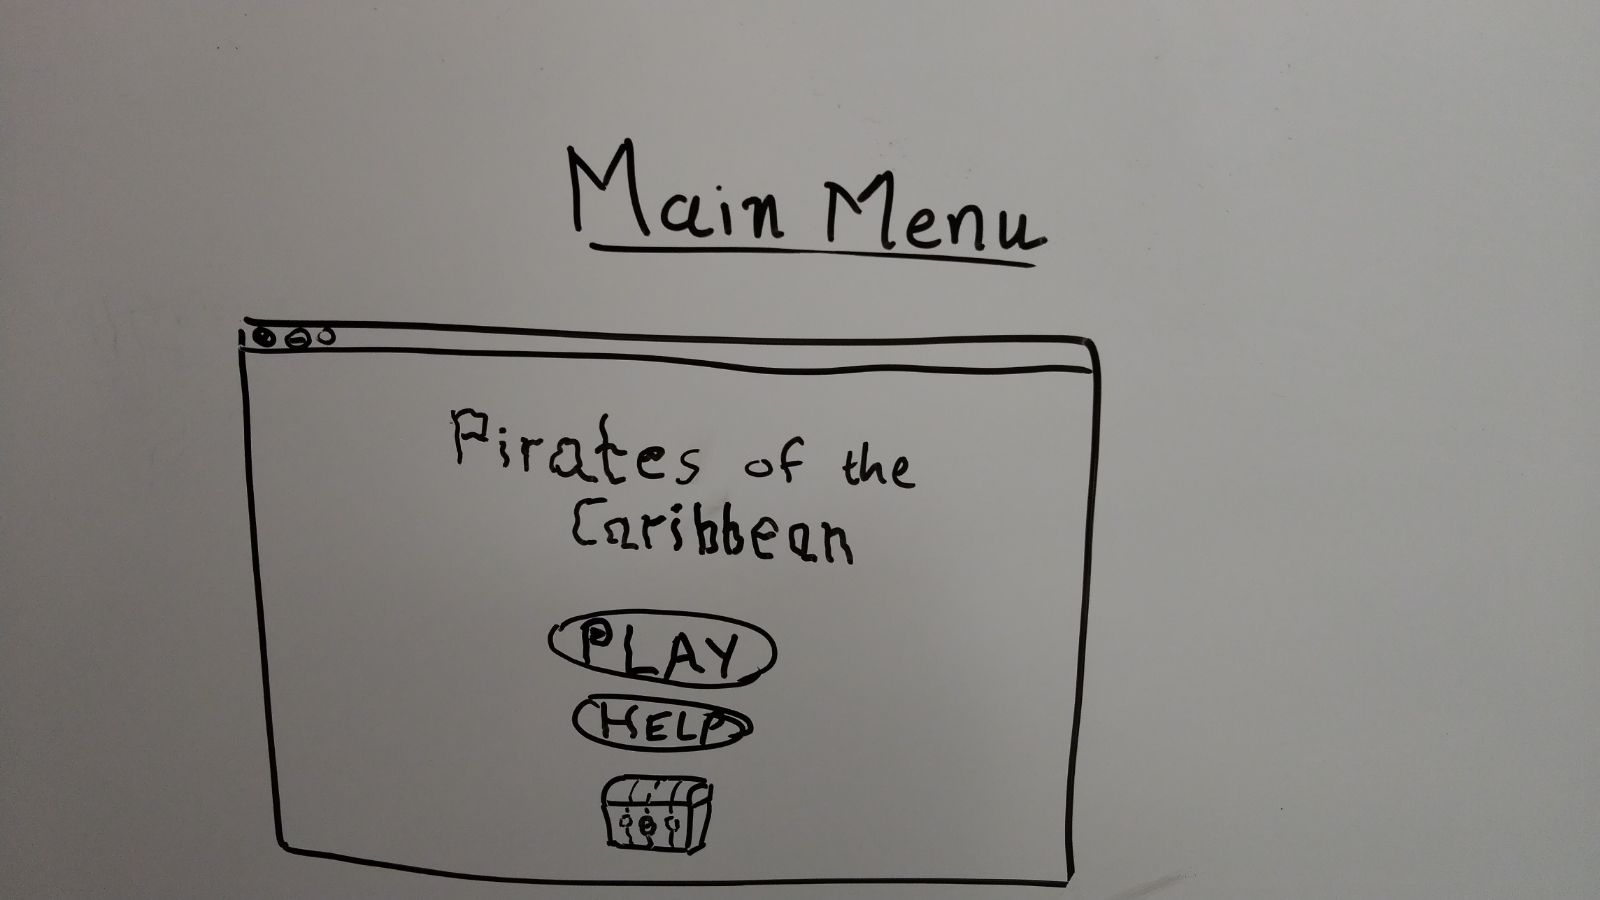 Main Menu
Pirates of the
Caribbean
PLAY
HELP